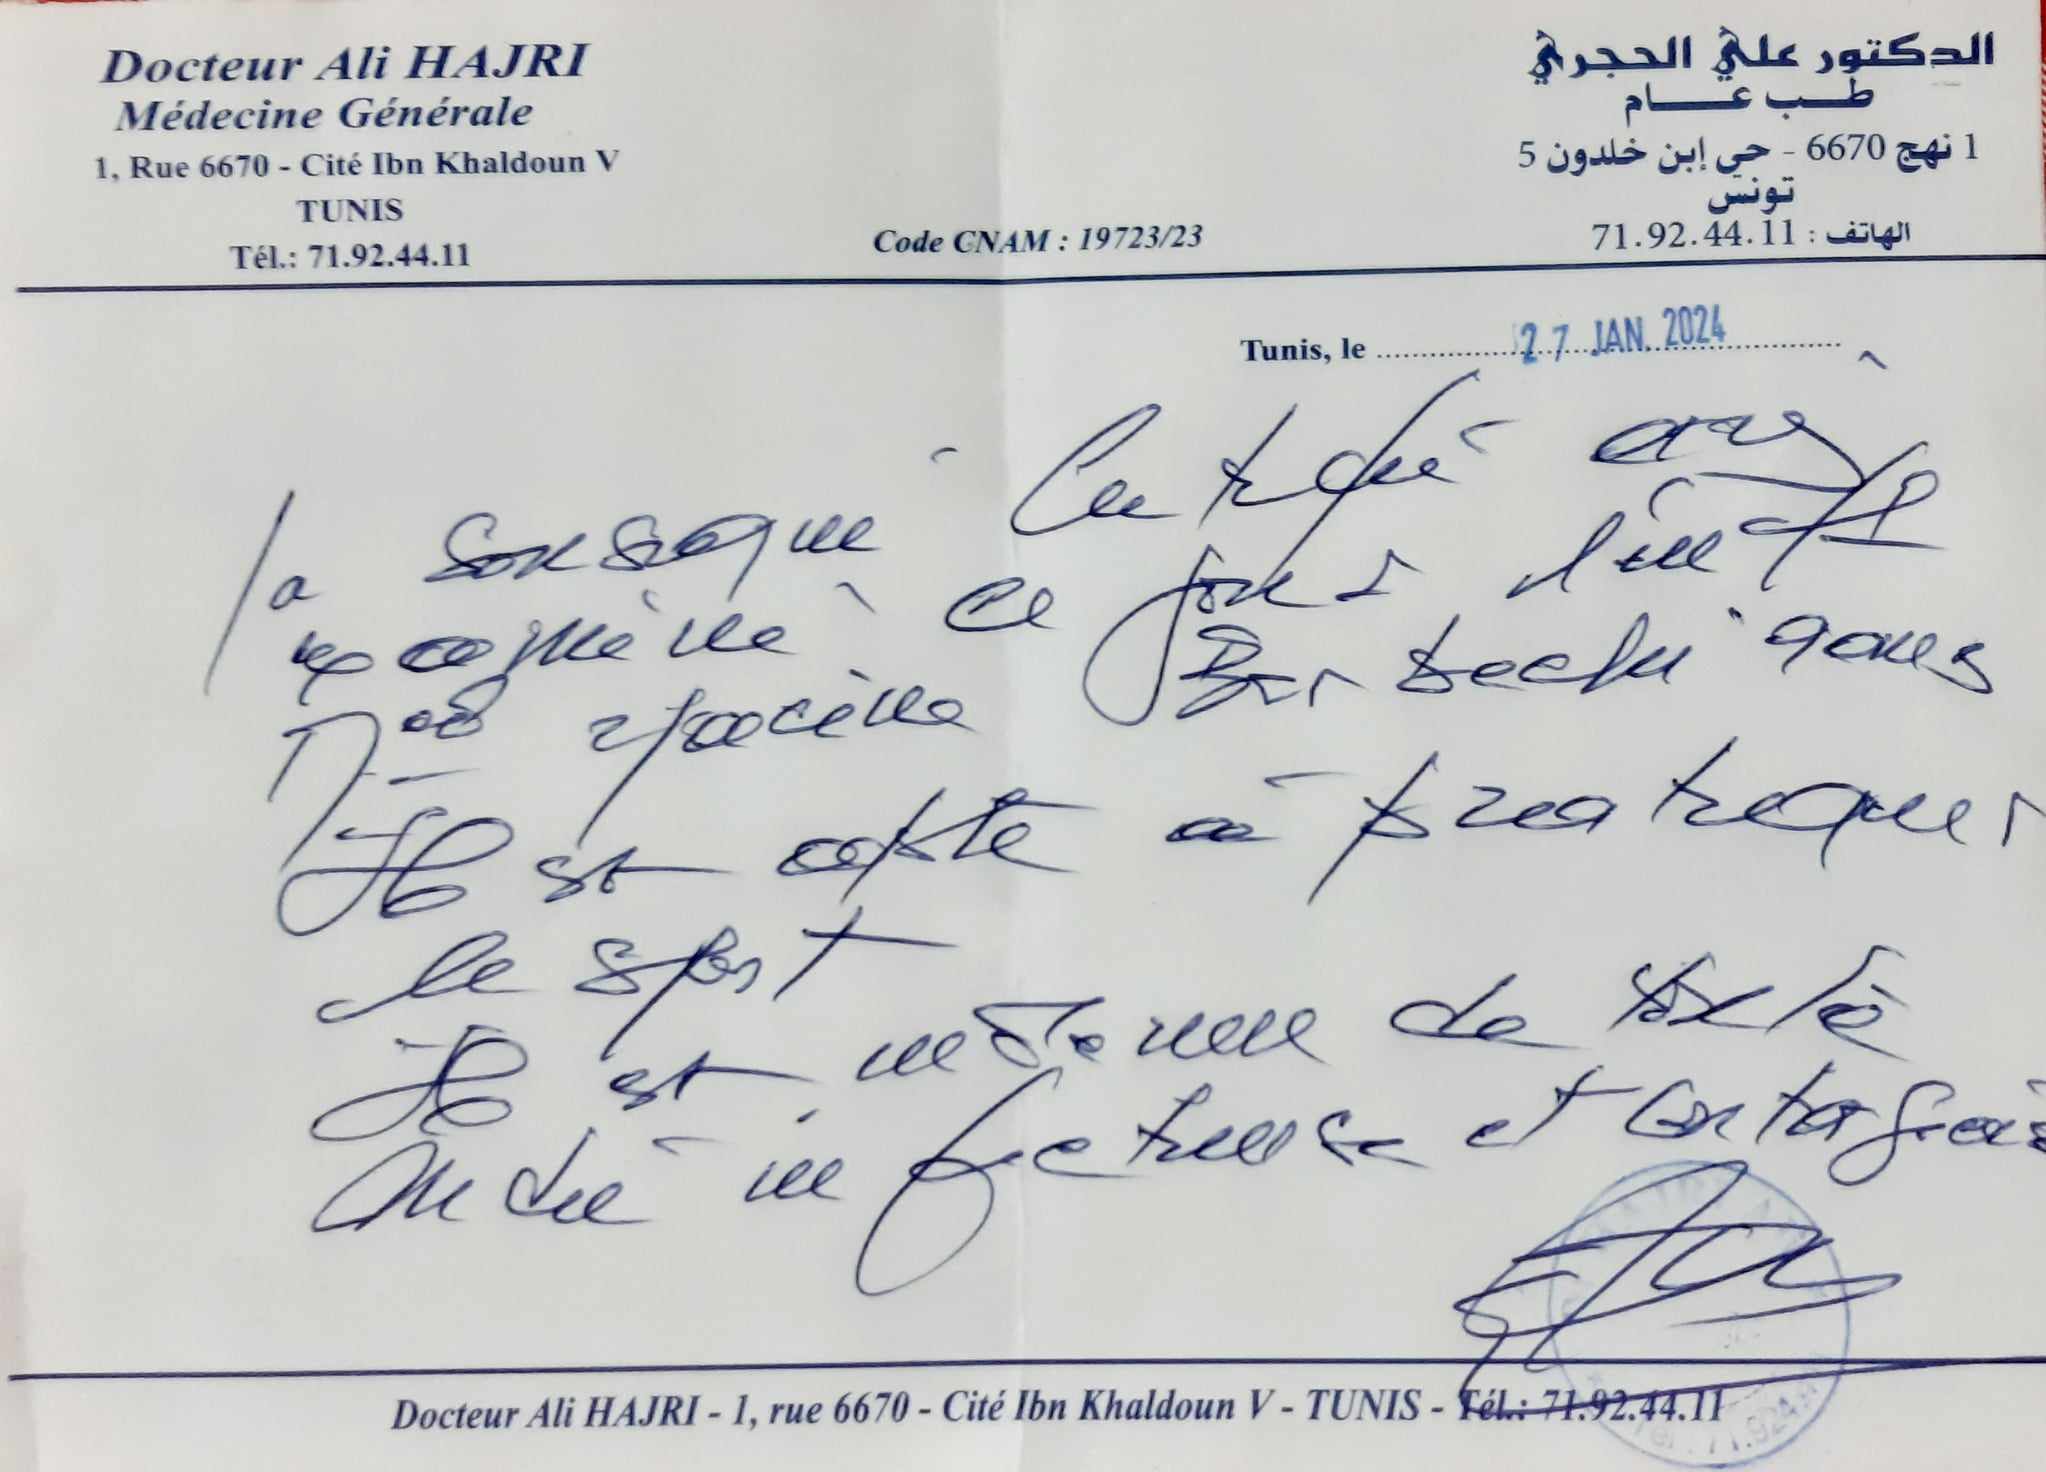 Docteur Ali HAJRI
Médecine Générale
1, Rue 6670 - Cité Ibn Khaldoun V
TUNIS
Tél.: 71.92.44.11
الدكتور علي الحجري
طب عام
1 نهج 6670 - حي إبن خلدون 5
تونس
الهاتف : 71.92.44.11
Code CNAM : 19723/23
Tunis, le 27 JAN. 2024
Je soussigné Certifié avoir
examiné ce jour
Il est apte à pratiquer
le sport
Il est indemne de toute
maladie infectieuse et contagieuse
Docteur Ali HAJRI - 1, rue 6670 - Cité Ibn Khaldoun V - TUNIS - Tél.: 71.92.44.11